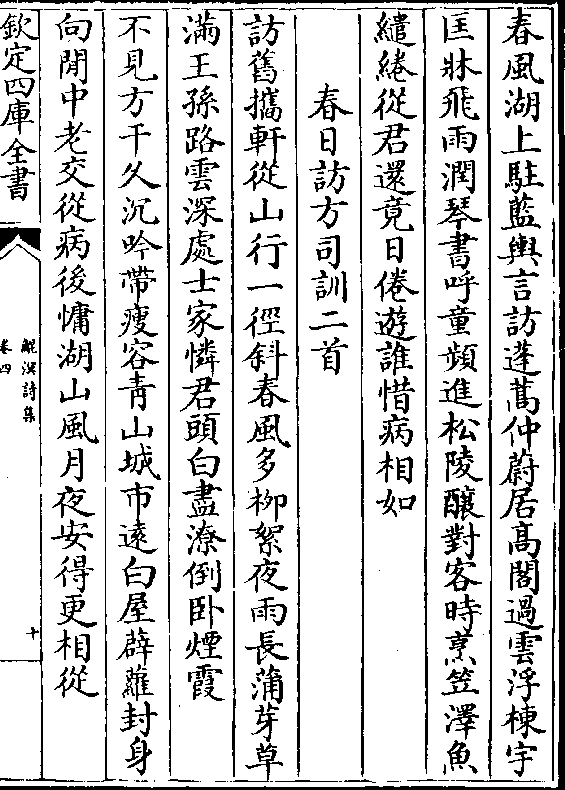 春風湖上駐藍輿言訪蓬蒿仲蔚居高閣過雲浮棟宇
匡牀飛雨潤琴書呼童頻進松陵釀對客時烹笠澤魚
繾綣從君還竟日倦遊誰惜病相如
春日訪方司訓二首
訪舊攜軒從山行一徑斜春風多柳絮夜雨長蒲芽草
滿王孫路雲深處士家憐君頭白盡潦倒卧煙霞
不見方干久沉吟帶瘦容青山城市遠白屋薜蘿封身
向閒中老交從病後慵湖山風月夜安得更相從
欽定四庫全書
鯤溟詩集
卷四
十